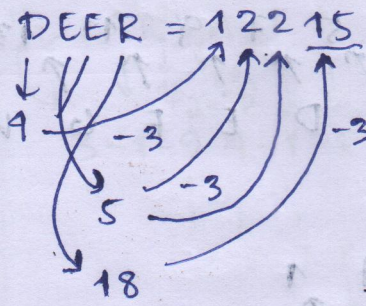 DEER = 12215
4 -3 -3
5 -3
18